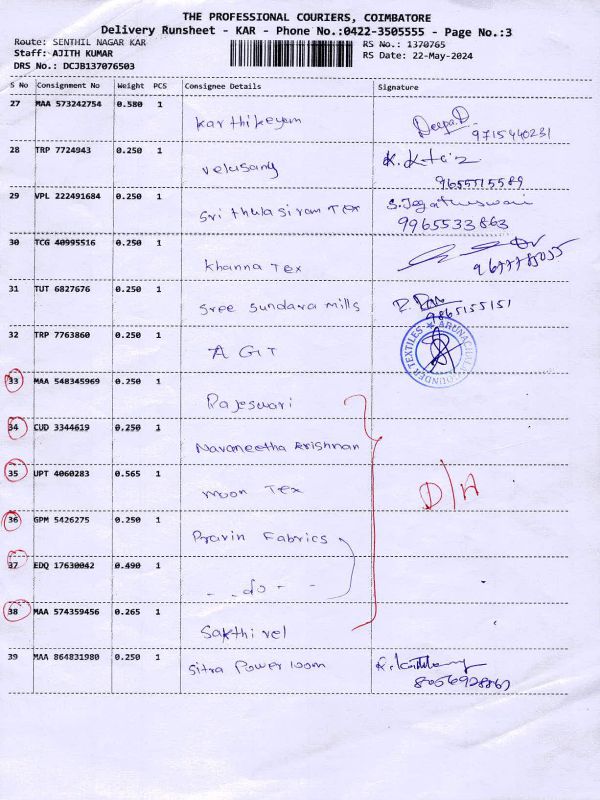 THE PROFESSIONAL COURIERS, COIMBATORE
Delivery Runsheet - KAR - Phone No.:0422-3505555 - Page No.:3
Route: SENTHIL NAGAR KAR
RS No.: 1370765
Staff: AJITH KUMAR
RS Date: 22-May-2024
DRS No.: DCJB137076503
S No Consignment No Weight PCS Consignee Details Signature
27 MAA 573242754 0.580 1 Karthikeyan Deepa.D. 9715440231
28 TRP 7724943 0.250 1 velusamy 9655715589
29 VPL 222491684 0.250 1 Sri thulasiram Tex S.Jegatheswari
9965533863
30 TCG 40995516 0.250 1 Khanna Tex
31 TUT 6827676 0.250 1 Sree Sundara Mills 9865155151
32 TRP 7763860 0.250 1 A G T
ARUNACHALA
UNDER TEXTILES
33 MAA 548345969 0.250 1 Rajeswari
34 CUD 3344619 0.250 1 Navaneetha Krishnan
35 UPT 4060283 0.565 1 Moon Tex D/A
36 GPM 5426275 0.250 1 Pravin Fabrics
37 EDQ 17630042 0.490 1 - - do - -
38 MAA 574359456 0.265 1 Sakthivel
39 MAA 864831980 0.250 1 Sitra Powerloom